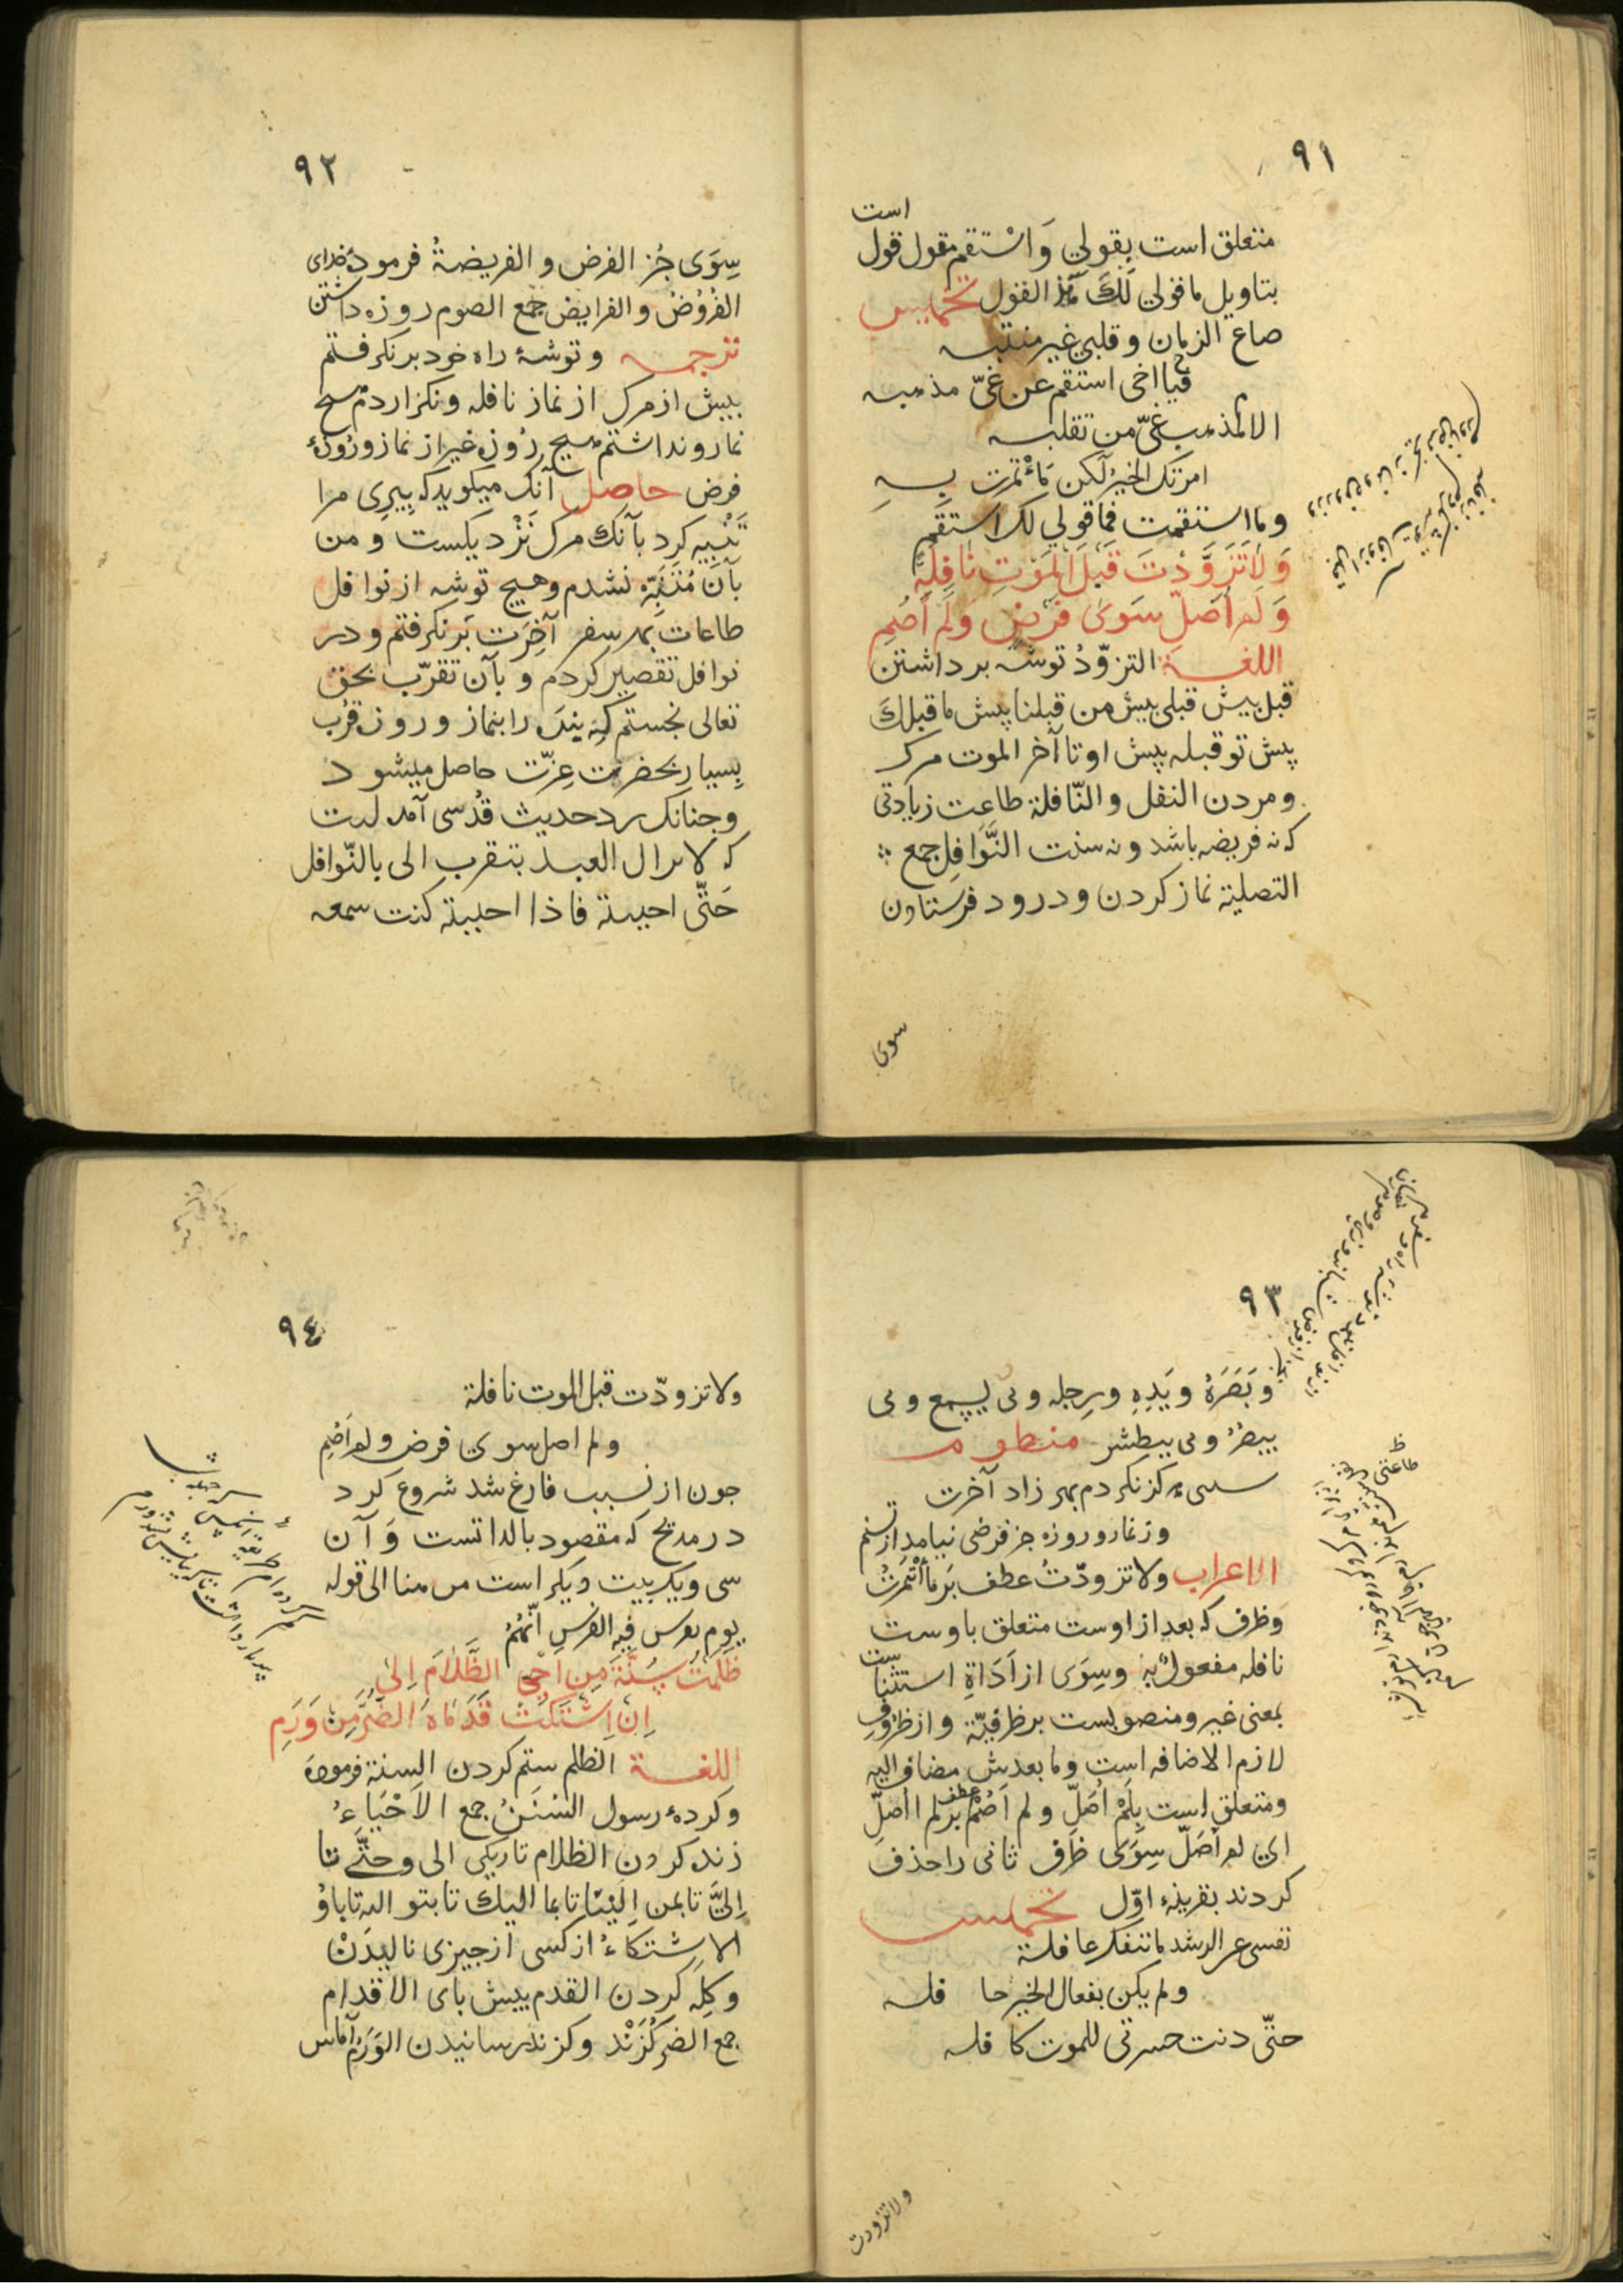 ٩١
است
متعلق است بقولی وَاسْتقم مقول قول
بتاویل ما قولی لَكَ هذ القول تخمیس
ضاع الزمان وقلبی غیر منتبه
فیا اخی استقم عن غیّ مذهبه
الا لمذهب غیّ من تقلبه
امرتك الخیر لکن مَا ئْتمرت بِهِ
وما استقمت فما قولی لك استقم
وَلَا تَزَوَّدْتَ قَبْلَ الْمَوْتِ نَافِلَةً
وَلَمْ اُصَلِّ سِوَی فَرْضٍ وَلَمْ اَصُمِ
اللغــة التزوّدُ توشه برداشتن
قبل پیش قبلی پیش من قبلنا پیش ما قبلكَ
پیش تو قبله پیش او تا آخر الموت مرک
و مردن النفل والنّافلة طاعت زیادتی
که نه فریضه باشد و نه سنت النَّوَافِل جمع
التصلیة نماز کردن و درود فرستادن
سوی
٩٢
سِوَی جُز الفرض و الفریضةُ فرمودۀ خدای
الفُرُوْضُ والفرایض جمع الصوم روزه داشتن
ترجمــه وتوشۀ راه خود برنکرفتم
بیش از مرک از نماز نافله ونکزاردم هیچ
نماز ونداشتم هیچ رُوزه غیر از نماز ورُوزۀ
فرض حاصل آنک میکوید که پیری مرا
تَنْبیه کرد بآنك مرک نَزْدیکست و من
بآن مُتَنَبِّه نشدم وهیچ توشه از نوافل
طاعات بهر سفر آخِرَت برنکرفتم و در
نوافل تقصیر کردم و بآن تقرّب بحق
تعالی نجستم که بنده را بنماز و روزه قُرْب
بِسیار بحضرت عِزّت حاصل میشود
وجنانک در حدیث قُدسی آمده است
که لا یزال العبد یتقرب الی بالنّوافل
حَتّی احببته فاذا احببته کنت سمعه
٩٣
وبَصَرَهُ ویَدِهِ ورِجله وبی یسمع وبی
یبصُر وبی یبطش منظوم
هرکز نکردم بهر زاد آخرت
وز نماز و روزه جز فرضی نیامد از تنم
الاعراب ولا تزودّتُ عطف بَر مَا ائْتَمَرْتُ
وظرف که بعد از اوست متعلق باوست
نافله مفعولٌ به وسِوَی از اَدَاةِ استثناست
بمعنی غیر ومنصوبست بر ظرفیّة واز ظروف
لازم الاضافه است وما بعدش مضاف الیه
ومتعلق است بِلَمْ اُصَلِّ ولم اَصُمْ عطف بر لم اُصَلِّ
ای لم اُصَلّ سِوَی ظرف ثانی را حذف
کردند بقرینۀ اوّل تخمیس
نفسی عن الرشد ما تنفك غافلة
ولم یکن بفعال الخیر حافله
حتّی دنت حسرتی للموت کافله
ولا تزودت
٩٤
ولا تزودّت قبل الموت نافلة
ولم اصل سوی فرض ولم اَصُمِ
جون از نسیب فارغ شد شروع کرد
در مدیح که مقصود بالذاتست وَآن
سی ویک بیت دیکر است من هنا الی قوله
یوم تفرس فیه الفرس اَنَّهُمُ
ظَلَمْتُ سُنَّةَ مَنْ اَحْیَی الظَّلَامَ اِلَی
اِنِ اشْتَكَتْ قَدَمَاهُ الضُّرَّ مِنْ وَرَمِ
اللغــة الظلم ستم کردن السنة فرمودۀ
وکردۀ رسول السُّنَنُ جمع الاَحْیَاءُ
زنده کردن الظلام تاریکی الی وحتّی تا
اِلَیَّ تا بمن اِلَیْنَا تا بما الیك تا بتو الیه تا باوُ
الاِشتکاءُ از کسی از جیزی نالیدَنْ
وکِلَه کردن القدم پیش پای الاقدام
جمع الضر کُزَنْد وکزند رسانیدن الوَرَمُ آماس